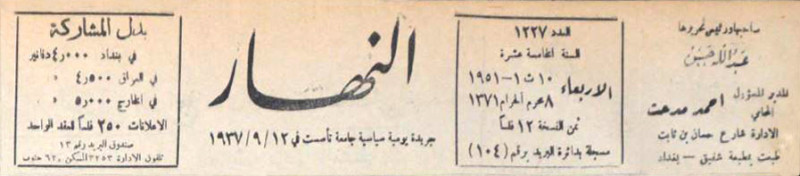 صاحبها ورئيس تحريرها
عبدالله حسن
المدير المسؤول
المحامي احمد مدحت
الادارة شارع حسان بن ثابت
طبعت بمطبعة شفيق - بغداد
العدد ١٢٢٧
السنة الخامسة عشرة
الاربعاء
١٠ ت ١ - ١٩٥١
٨ محرم الحرام ١٣٧١
ثمن النسخة ١٢ فلساً
مسجلة بدائرة البريد برقم (١٠٤)
النهار
جريدة يومية سياسية جامعة تأسست في ١٩٣٧/٩/١٢
بدل المشاركة
في بغداد ٤٫٠٠٠ دنانير
في العراق ٤٫٥٠٠ "
في الخارج ٥٫٠٠٠ "
الاعلانات ٢٥٠ فلساً للعقد الواحد
صندوق البريد رقم ١٣
تلفون الادارة ٣٢٥٣ السكن ٦٢ جنوب